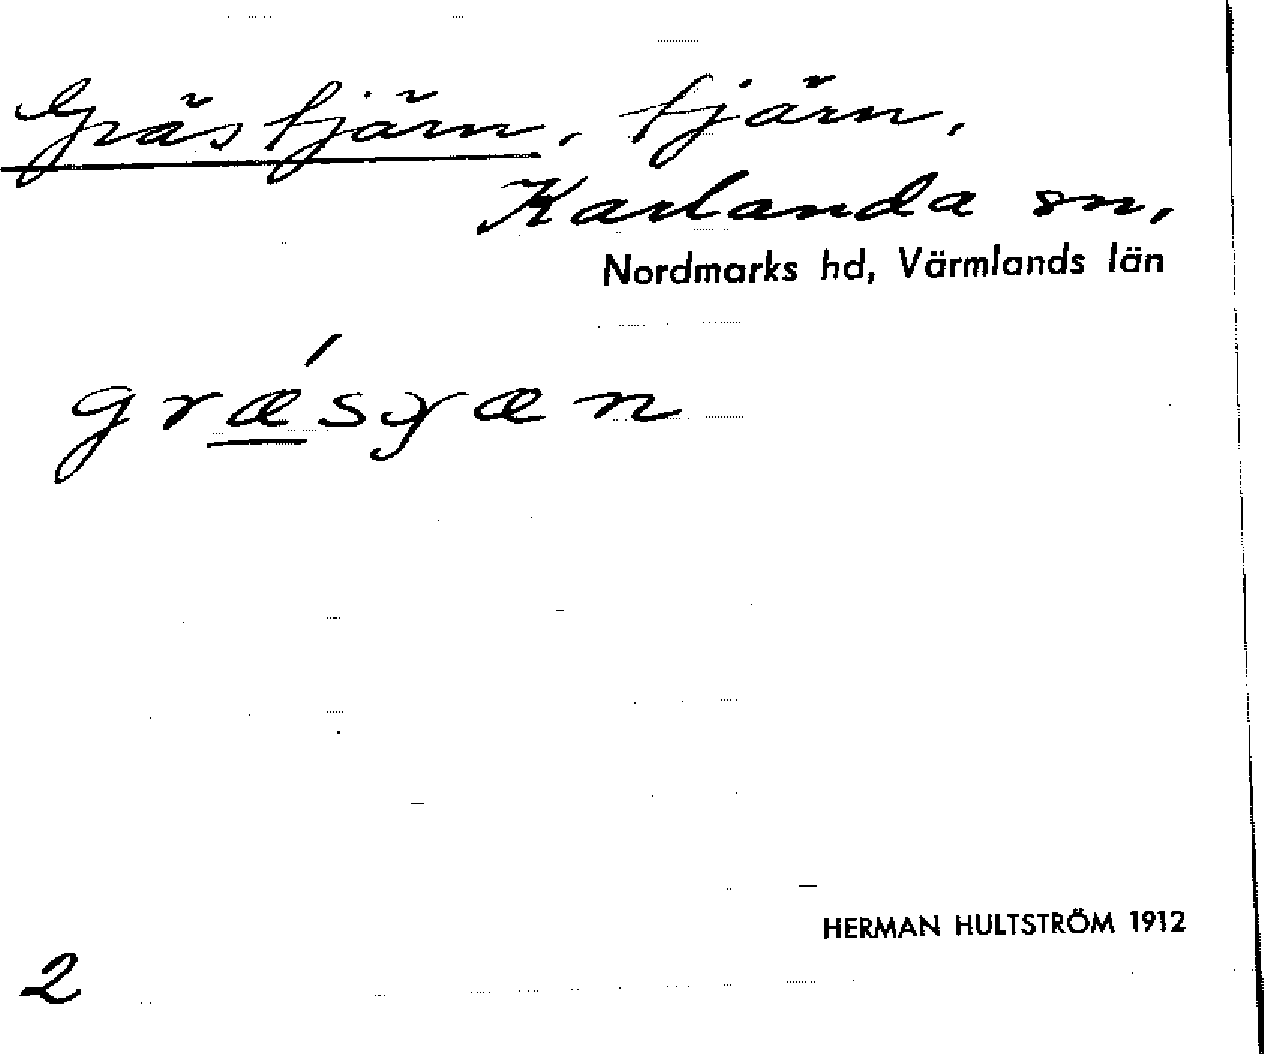 Grästjärn, tjärn,
Karlanda sn,
Nordmarks hd, Värmlands län
græ´sɟæn
HERMAN HULTSTRÖM 1912
2